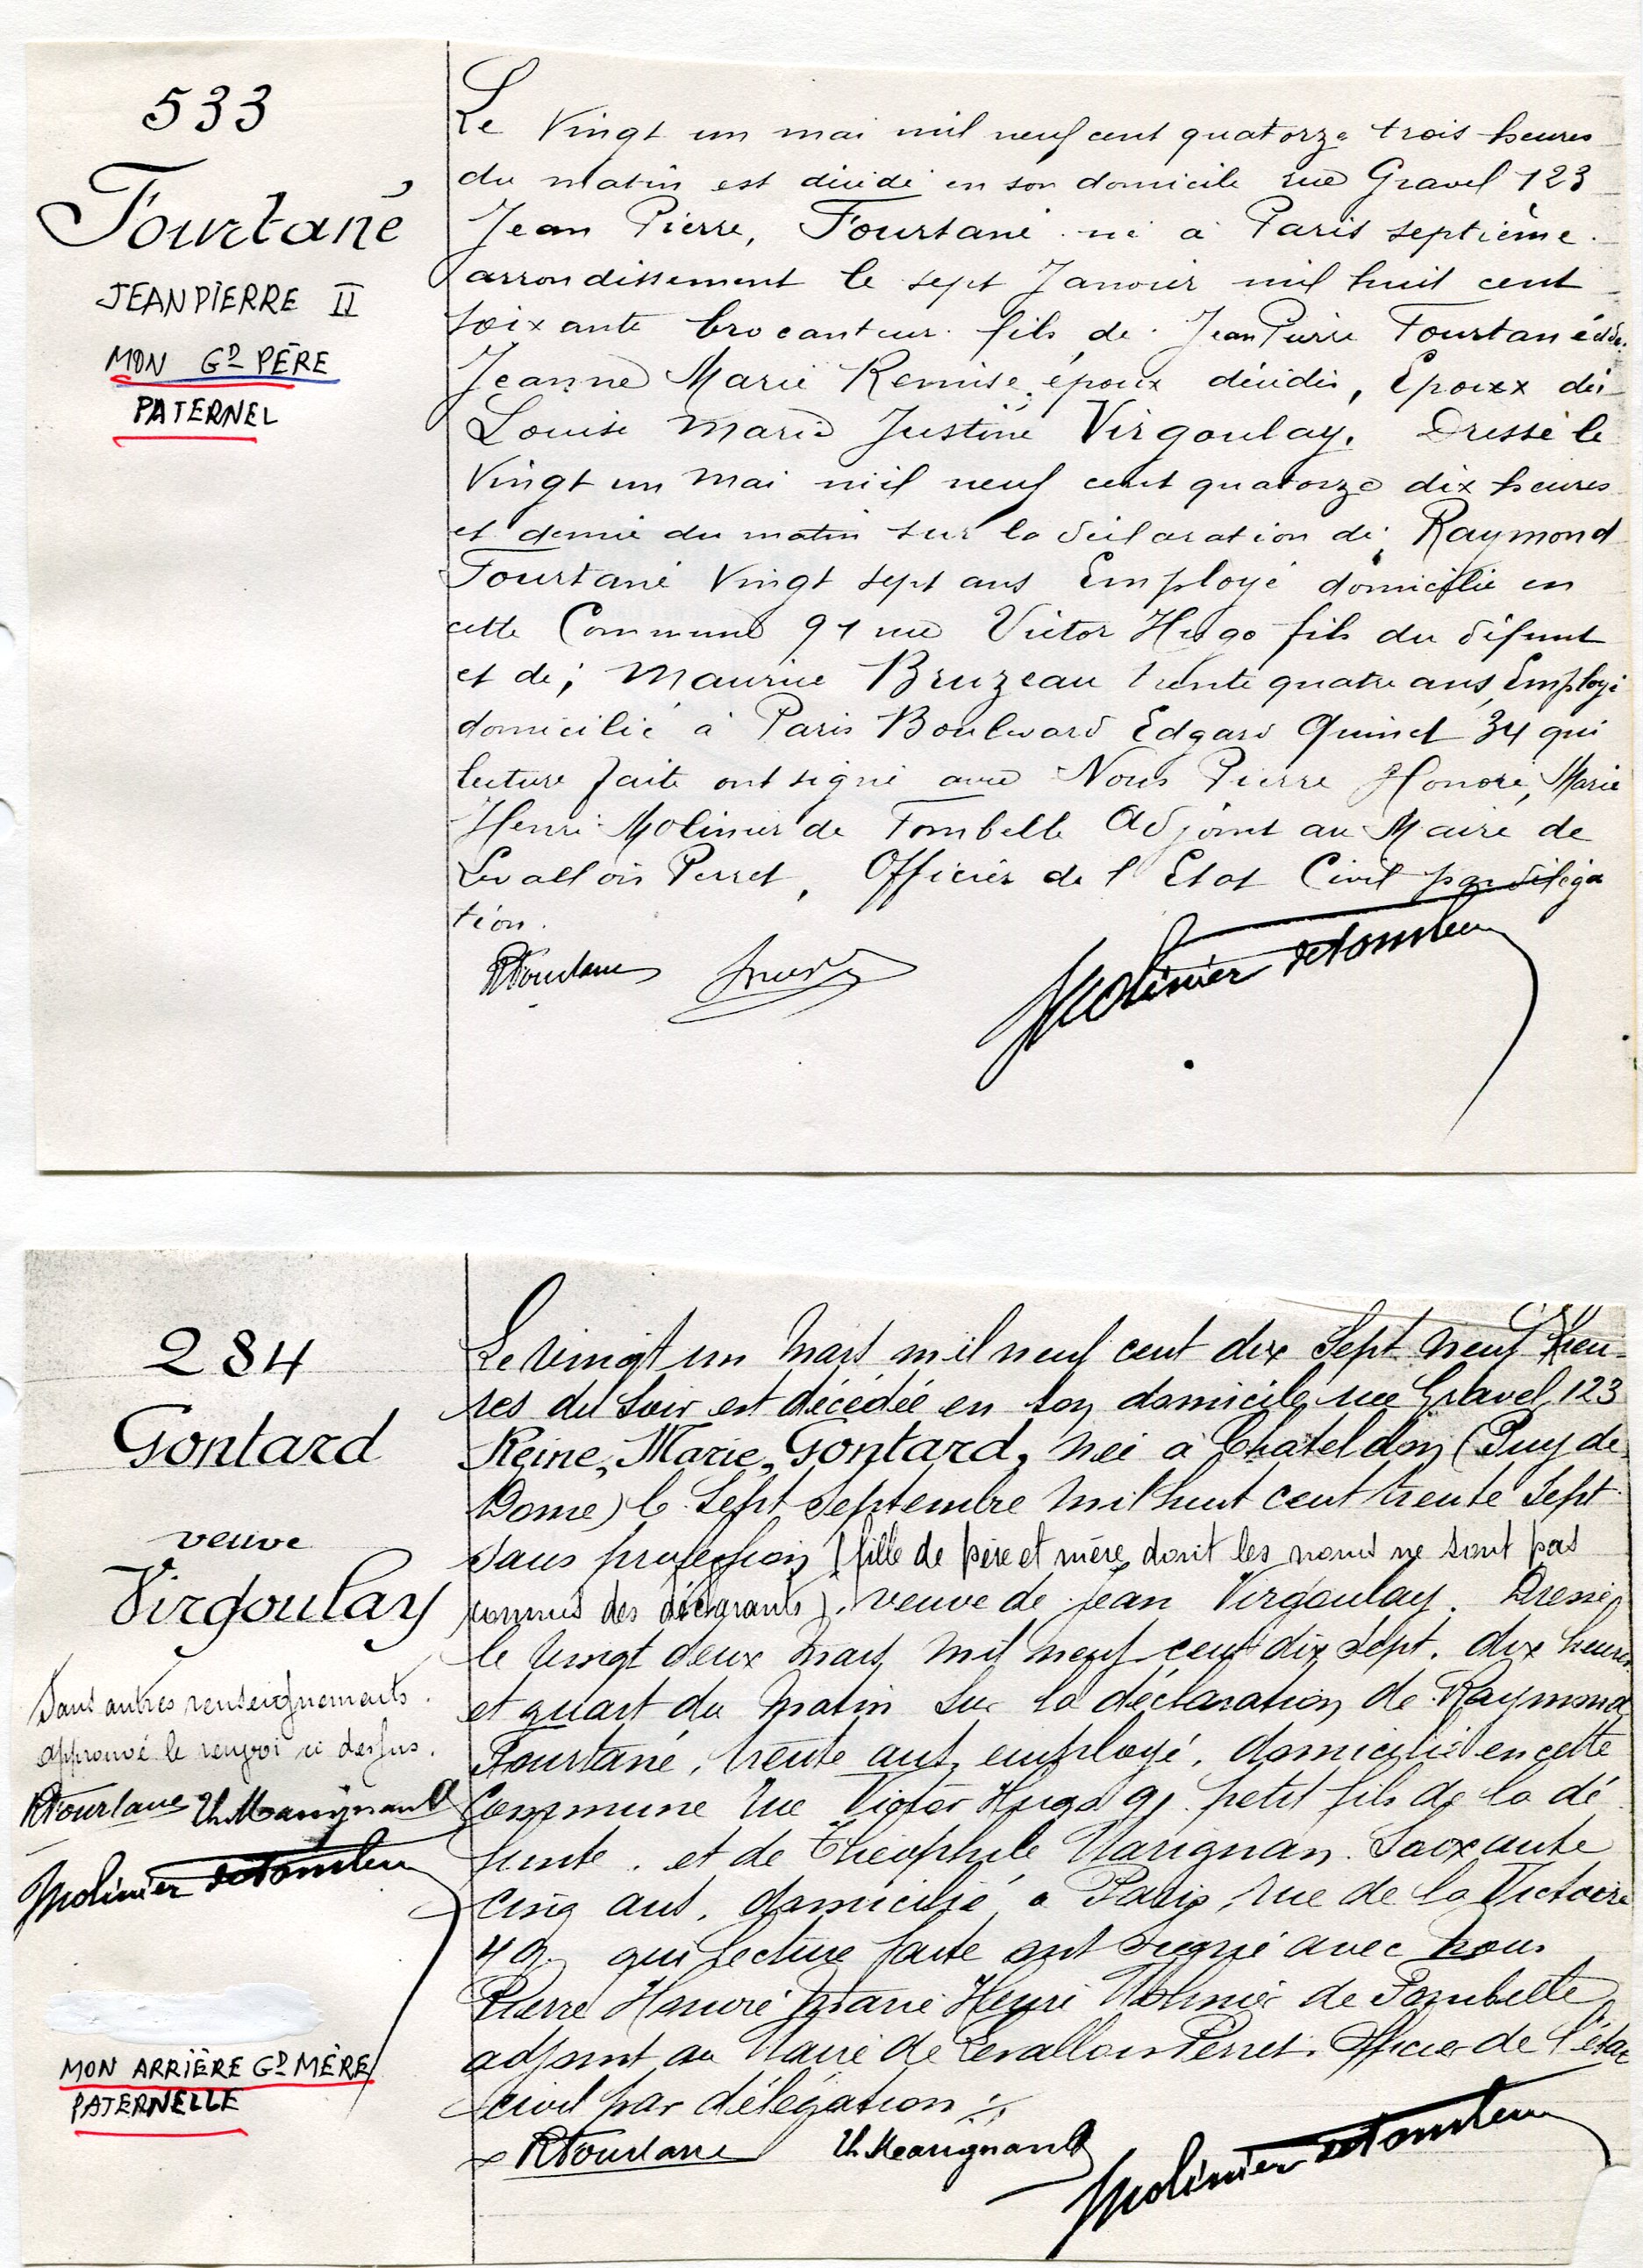 533
Fourtané
JEAN PIERRE II
MON GD PÈRE
PATERNEL
Le Vingt un mai mil neuf cent quatorze trois heures
du matin est décédé en son domicile rue Gravel 123
Jean Pierre, Fourtané né à Paris septième
arrondissement le sept Janvier mil huit cent
soixante brocanteur. fils de Jean Pierre Fourtané et de
Jeanne Marie Remise époux décédés, Epoux de
Louise Marie Justine Virgoulay. Dressé le
Vingt un mai mil neuf cent quatorze dix heures
et demie du matin sur la déclaration de; Raymond
Fourtané Vingt sept ans Employé domicilié en
cette Commune 91 rue Victor Hugo fils du défunt
et de; Maurice Bruzeau trente quatre ans, Employé
domicilié à Paris Boulevard Edgard Quinet 34 qui
lecture faite ont signé avec Nous Pierre Honoré, Marie
Henri Molinier de Fombelle Adjoint au Maire de
Levallois Perret, Officier de l'Etat Civil par déléga
tion.
RFourtané Molinier deFombelle
284
Gontard
veuve
Virgoulay
Sans autres renseignements.
approuvé le renvoi ci dessus.
RFourtane Th Marignan
Molinier deFombelle
MON ARRIÈRE GD MÈRE
PATERNELLE
Le vingt un Mars mil neuf cent dix Sept neuf heu-
res du soir est décédée en son domicile rue Gravel, 123
Reine, Marie, Gontard, née à Chateldon (Puy de
Dome) le Sept Septembre mil huit cent trente Sept
Sans profession (fille de père et mère dont les noms ne sont pas
connus des déclarants). veuve de Jean Virgoulay. Dressé
le vingt deux Mars mil neuf cent dix Sept. dix heures
et quart du Matin Sur la déclaration de Raymond
Fourtané, trente ans, employé, domicilié en cette
Commune rue Victor Hugo 91 petit fils de la dé
funte. et de Théophile Marignan Soixante
cinq ans. domicilié à Paris, rue de la Victoire
49 qui lecture faite ont signé avec nous
Pierre Honoré Marie Henri Molinier de Fombelle
adjoint au Maire de Levallois Perret. Officier de l'état
civil par délégation
RFourtane Th Marignan Molinier deFombelle